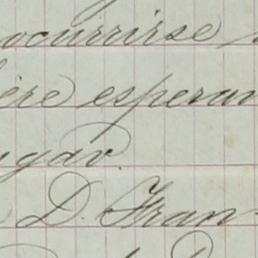 ocurrirse
ere esperan
gar.
D. Fran